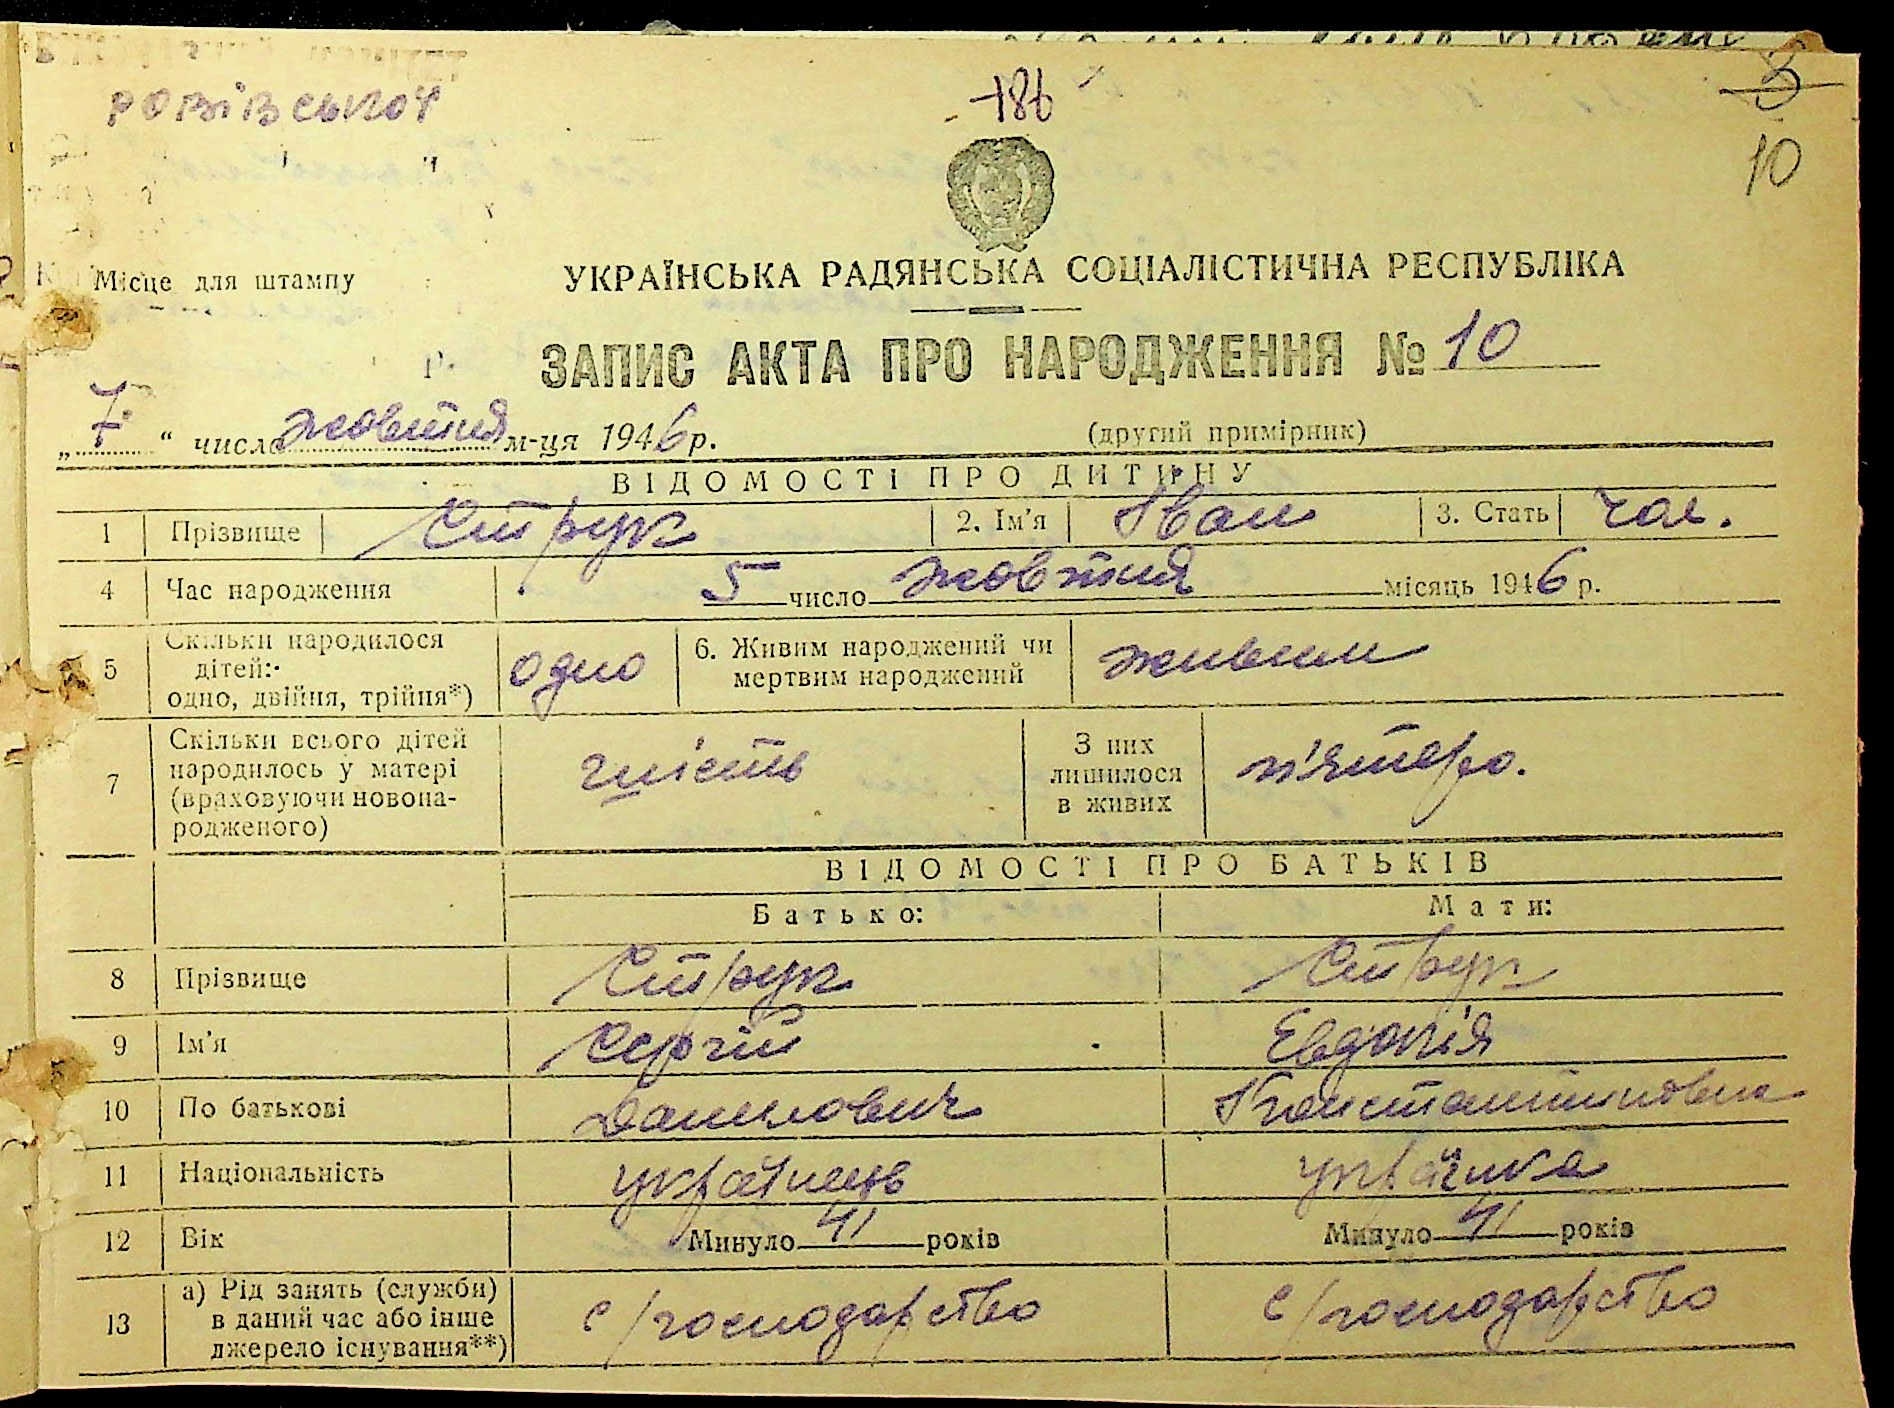 186
3
10
Місце для штампу
УКРАЇНСЬКА РАДЯНСЬКА СОЦІАЛІСТИЧНА РЕСПУБЛІКА
ЗАПИС АКТА ПРО НАРОДЖЕННЯ № 10
„ 7 “ число жовтня м-ця 1946 р.
(другий примірник)
ВІДОМОСТІ ПРО ДИТИНУ
1 Прізвище Струк 2. Ім'я Іван 3. Стать чол.
4 Час народження 5 число жовтня місяць 1946 р.
5 Скільки народилося дітей: одно, двійня, трійня*) одно 6. Живим народжений чи мертвим народжений живим
7 Скільки всього дітей народилось у матері (враховуючи новонародженого) шість З них лишилося в живих п'ятеро.
ВІДОМОСТІ ПРО БАТЬКІВ
Батько: Мати:
8 Прізвище Струк Струк
9 Ім'я Сергій Евдокія
10 По батькові Данилович Константиновна
11 Національність українець українка
12 Вік Минуло 41 років Минуло 41 років
13 а) Рід занять (служби) в даний час або інше джерело існування**) с/господарство с/господарство